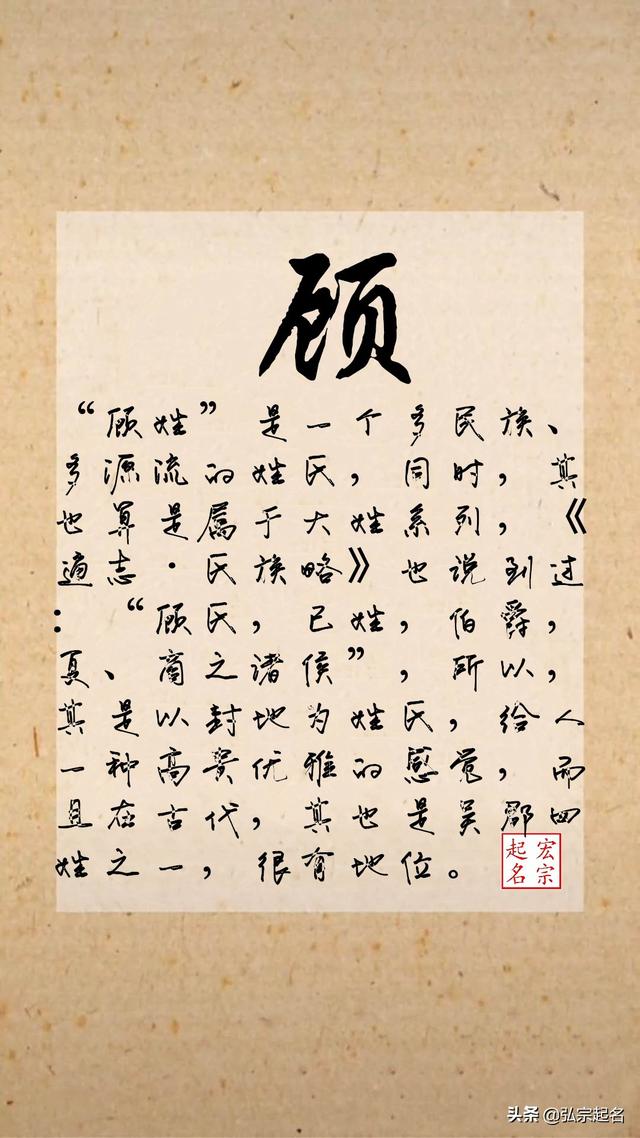 顾
“顾姓”是一个多民族、
多源流的姓氏，同时，其
也算是属于大姓系列，《
通志·氏族略》也说到过
：“顾氏，己姓，伯爵，
夏、商之诸侯”，所以，
其是以封地为姓氏，给人
一种高贵优雅的感觉，而
且在古代，其也是吴郡四
姓之一，很有地位。
宏宗起名
头条 @弘宗起名